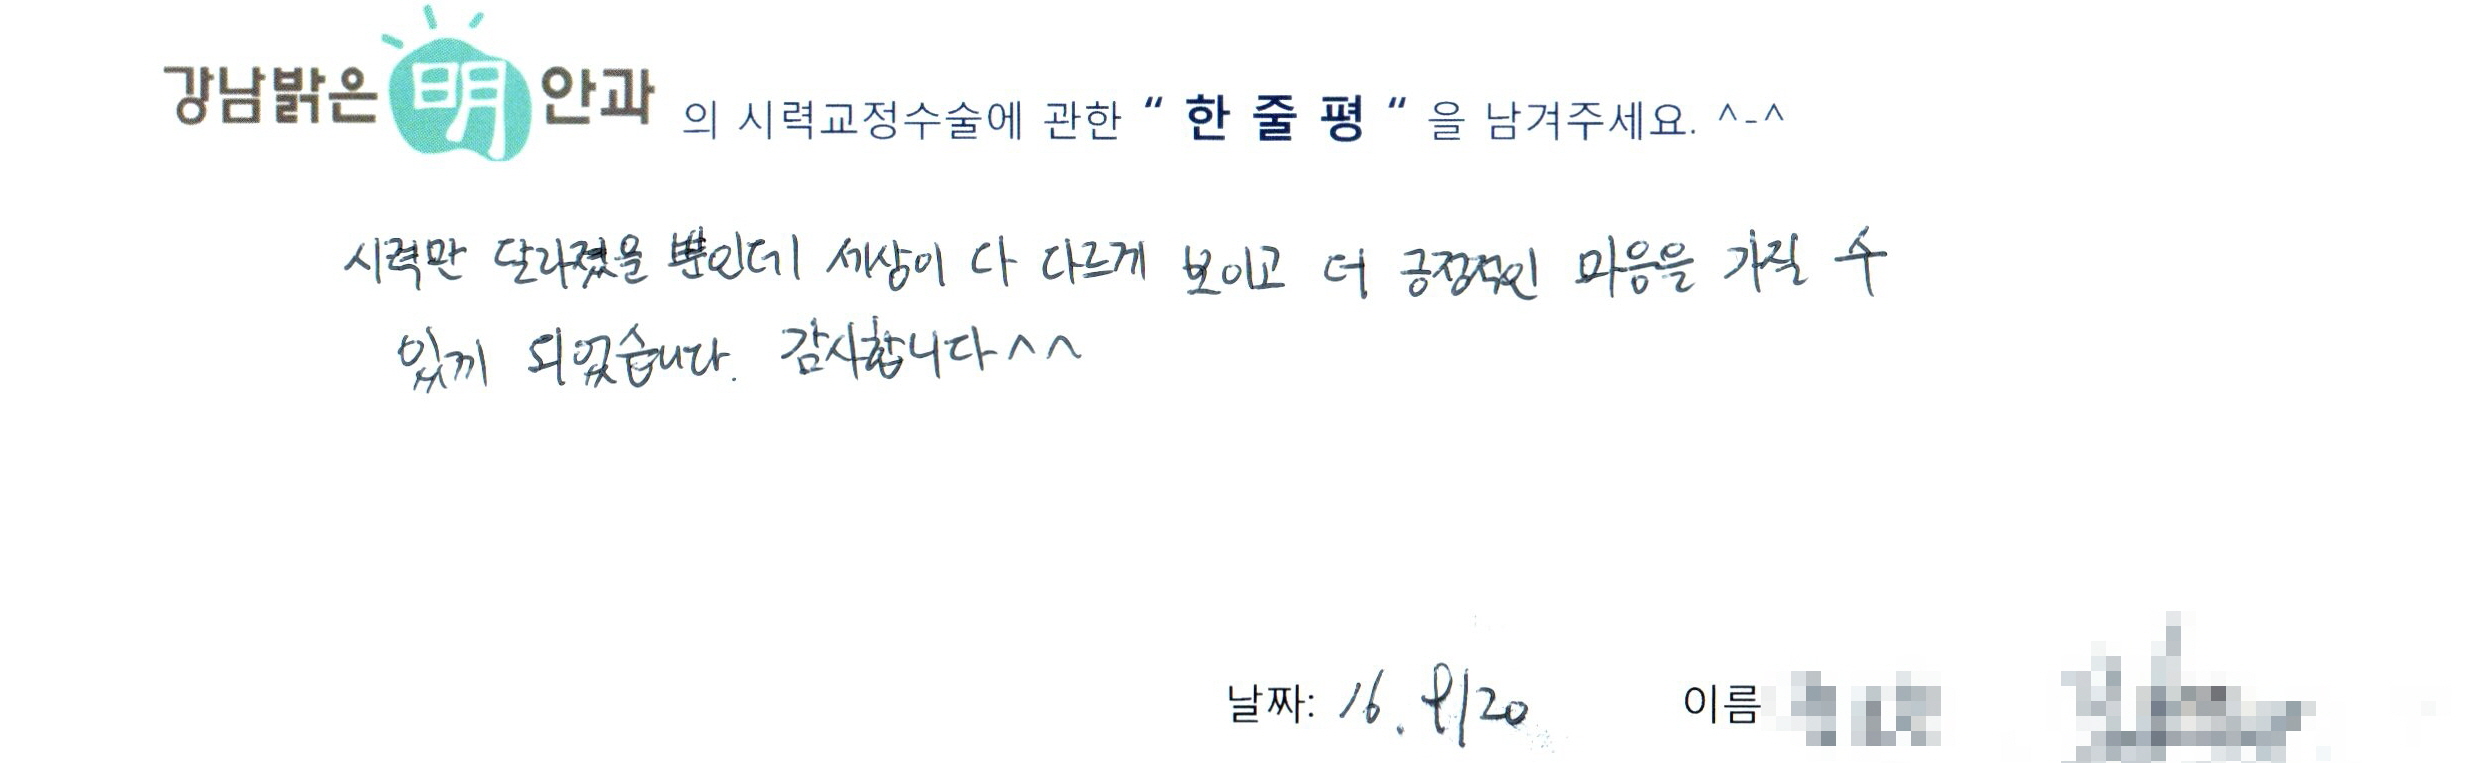 강남밝은明안과 의 시력교정수술에 관한 “ 한 줄 평 “ 을 남겨주세요. ^-^
시력만 달라졌을 뿐인데 세상이 다 다르게 보이고 더 긍정적인 마음을 가질 수
있께 되었습니다. 감사합니다^^
날짜: 16. 8/20 이름